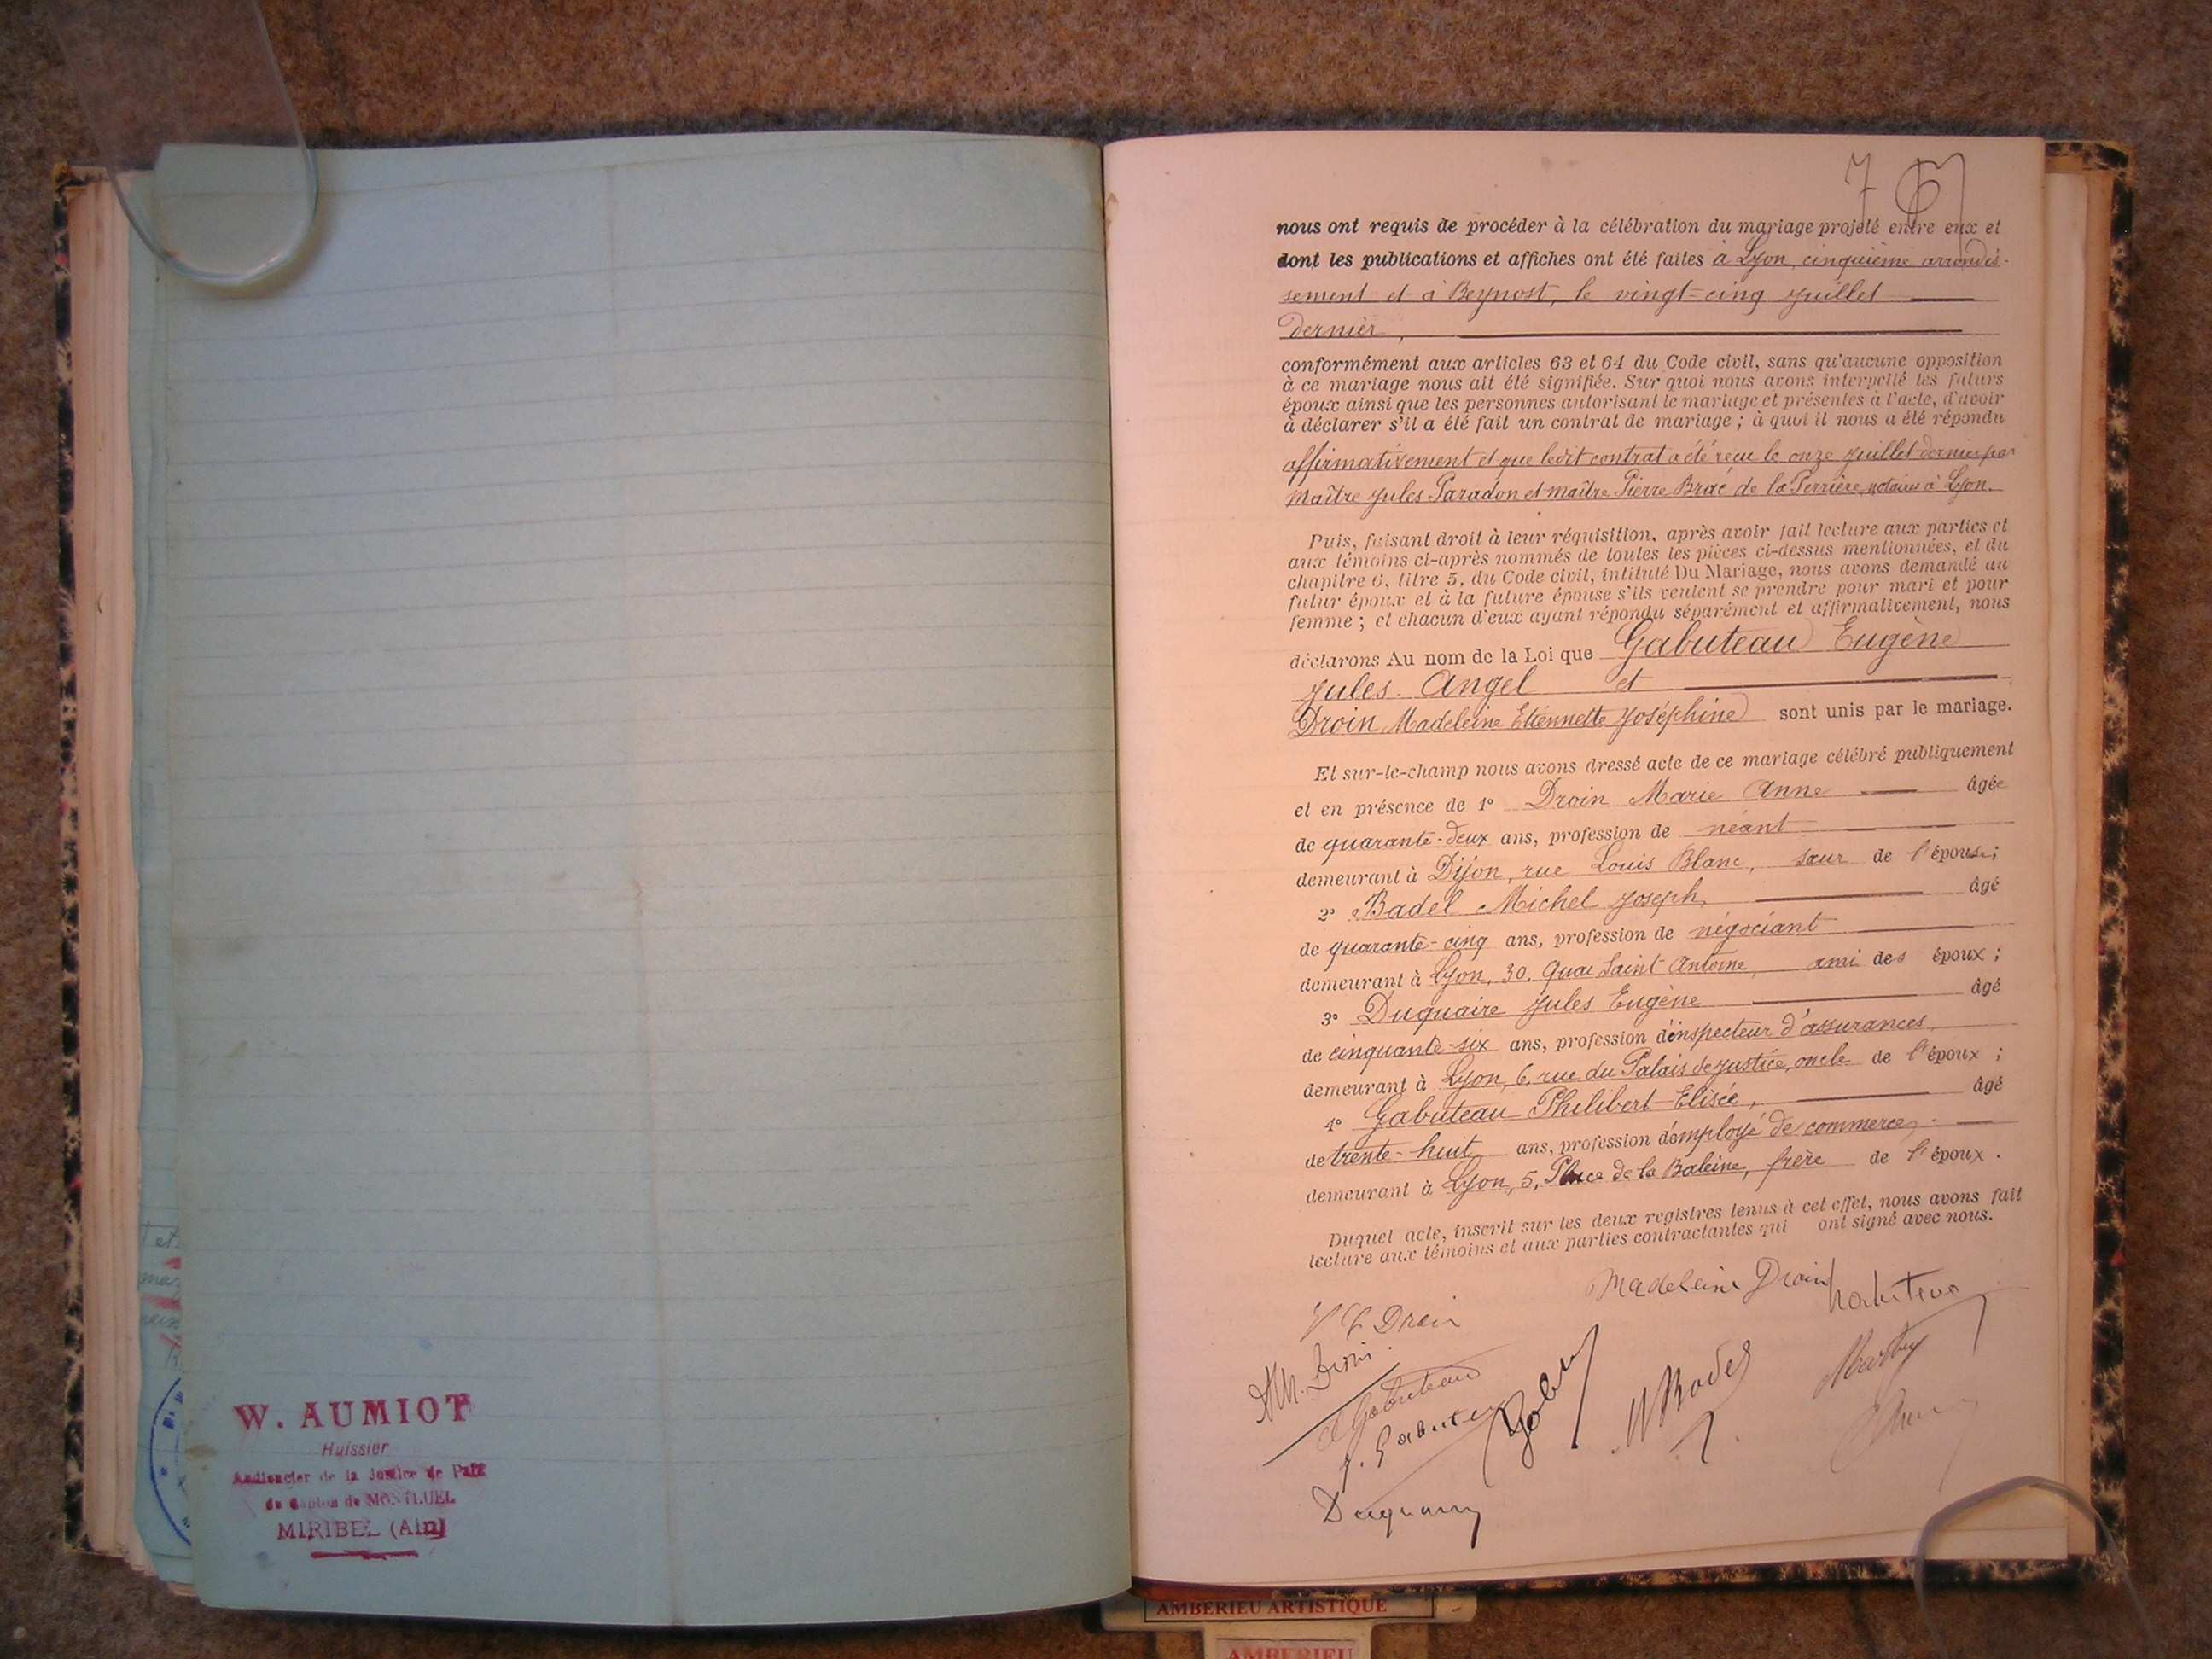 W. AUMIOT
Huissier
Audiencier de la Justice de Paix
du Canton de MONTLUEL
MIRIBEL (Ain)
7
nous ont requis de procéder à la célébration du mariage projeté entre eux et
dont les publications et affiches ont été faites à Lyon, cinquième arrondis-
sement et à Beynost, le vingt-cinq juillet
dernier,
conformément aux articles 63 et 64 du Code civil, sans qu'aucune opposition
à ce mariage nous ait été signifiée. Sur quoi nous avons interpellé les futurs
époux ainsi que les personnes autorisant le mariage et présentes à l'acte, d'avoir
à déclarer s'il a été fait un contrat de mariage ; à quoi il nous a été répondu
affirmativement et que ledit contrat a été reçu le onze juillet dernier par
Maître Jules Paradon et maître Pierre Brac de la Perrière, notaires à Lyon.
Puis, faisant droit à leur réquisition, après avoir fait lecture aux parties et
aux témoins ci-après nommés de toutes les pièces ci-dessus mentionnées, et du
chapitre 6, titre 5, du Code civil, intitulé Du Mariage, nous avons demandé au
futur époux et à la future épouse s'ils veulent se prendre pour mari et pour
femme ; et chacun d'eux ayant répondu séparément et affirmativement, nous
déclarons Au nom de la Loi que Gabuteau Eugène
Jules Angel et
Droin Madeleine Etiennette Joséphine sont unis par le mariage.
Et sur-le-champ nous avons dressé acte de ce mariage célébré publiquement
et en présence de 1° Droin Marie Anne âgée
de quarante-deux ans, profession de néant
demeurant à Dijon, rue Louis Blanc, sœur de l'épouse;
2° Badel Michel Joseph, âgé
de quarante-cinq ans, profession de négociant
demeurant à Lyon, 30, Quai Saint Antoine, ami des époux ;
3° Duquaire Jules Eugène âgé
de cinquante-six ans, profession d'inspecteur d'assurances
demeurant à Lyon, 6, rue du Palais de justice, oncle de l'époux ;
4° Gabuteau Philibert Elisée, âgé
de trente-huit ans, profession d'employé de commerce,
demeurant à Lyon, 5, Place de la Baleine, frère de l'époux.
Duquel acte, inscrit sur les deux registres tenus à cet effet, nous avons fait
lecture aux témoins et aux parties contractantes qui ont signé avec nous.
Madeleine Droin
Droin
Droin
Gabuteau
AMBERIEU ARTISTIQUE
AMBERIEU